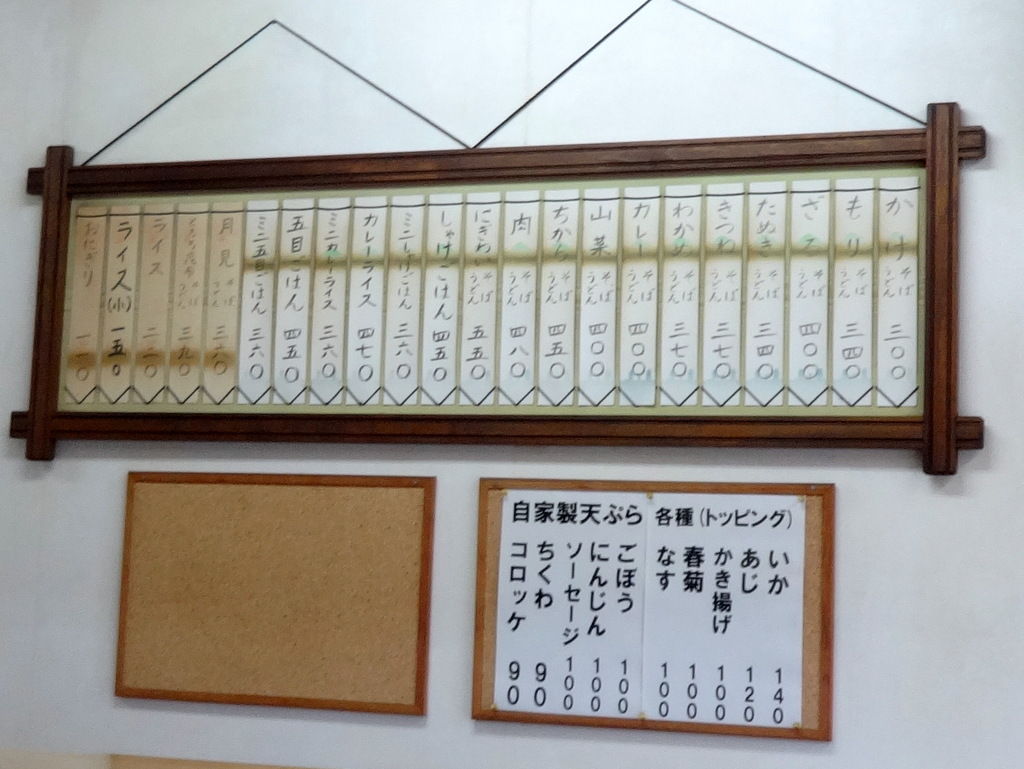 かけ そば うどん 三〇〇
もり そば うどん 三四〇
ざる そば うどん 四〇〇
たぬき そば うどん 三四〇
きつね そば うどん 三七〇
わかめ そば うどん 三七〇
カレー そば うどん 四〇〇
山菜 そば うどん 四〇〇
ちから そば うどん 四五〇
肉 そば うどん 四八〇
にぎわい そば うどん 五五〇
しゃけごはん 四五〇
ミニしゃけごはん 三六〇
カレーライス 四七〇
ミニカレーライス 三六〇
五目ごはん 四五〇
ミニ五目ごはん 三六〇
月見 そば うどん 三六〇
とろろ昆布 そば うどん 三九〇
ライス 二二〇
ライス(小) 一五〇
おにぎり
自家製天ぷら 各種(トッピング)
いか 140
あじ 120
かき揚げ 100
春菊 100
なす 100
ごぼう 100
にんじん 100
ソーセージ 100
ちくわ 90
コロッケ 90